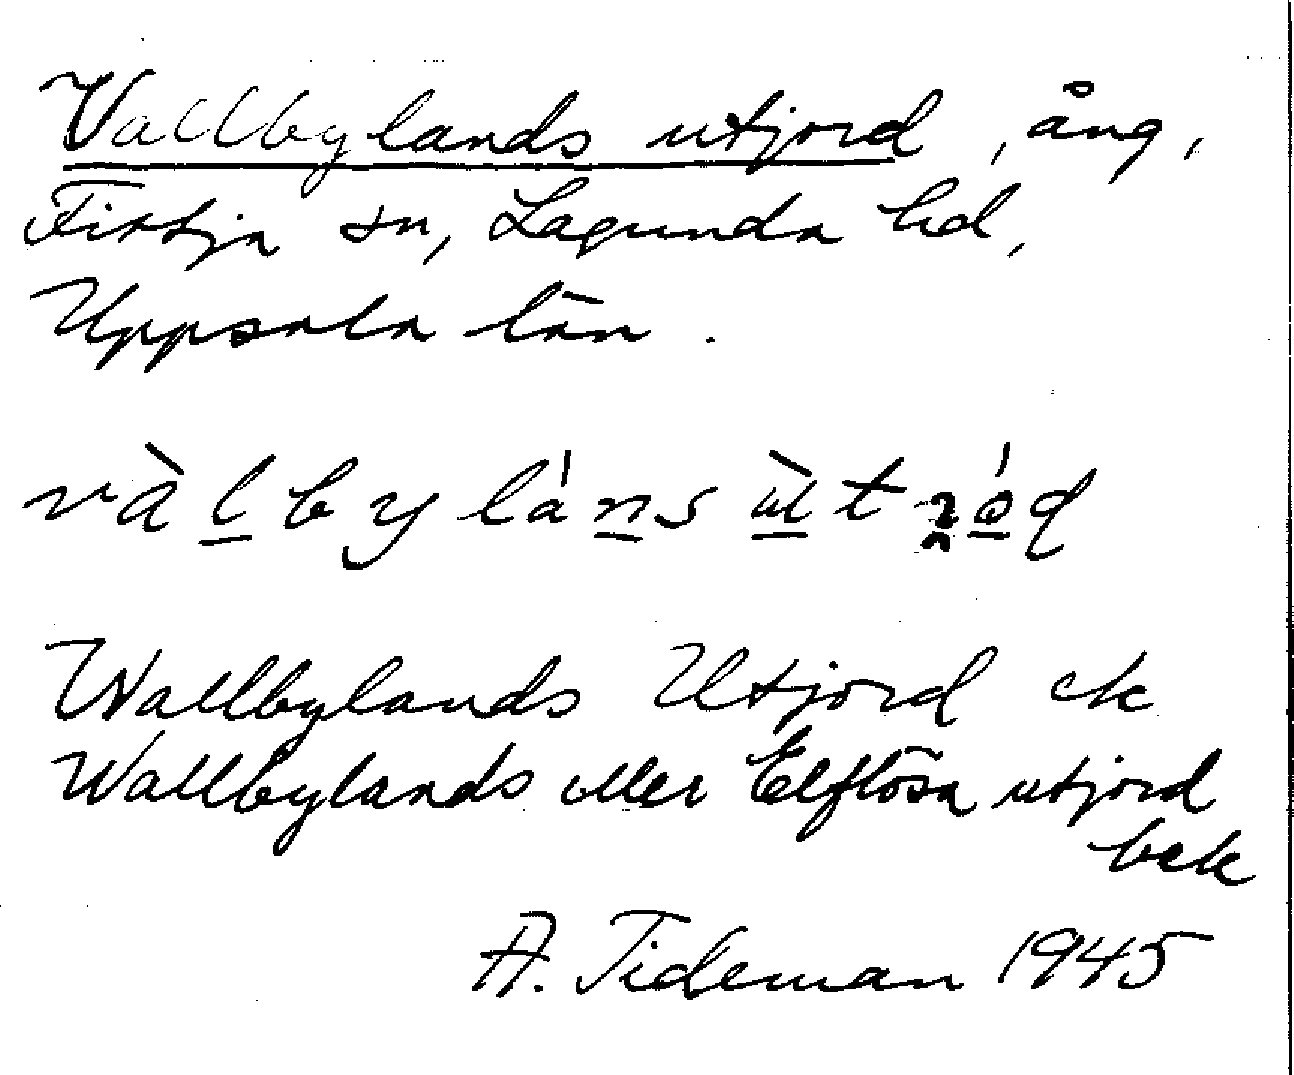 Vallbylands utjord, äng,
Fittja sn, Lagunda hd,
Uppsala län.
vàlbylánsùtjóɖ
Wallbylands Utjord ek
Wallbylands eller Elflösa utjord
bek
A. Tideman 1945